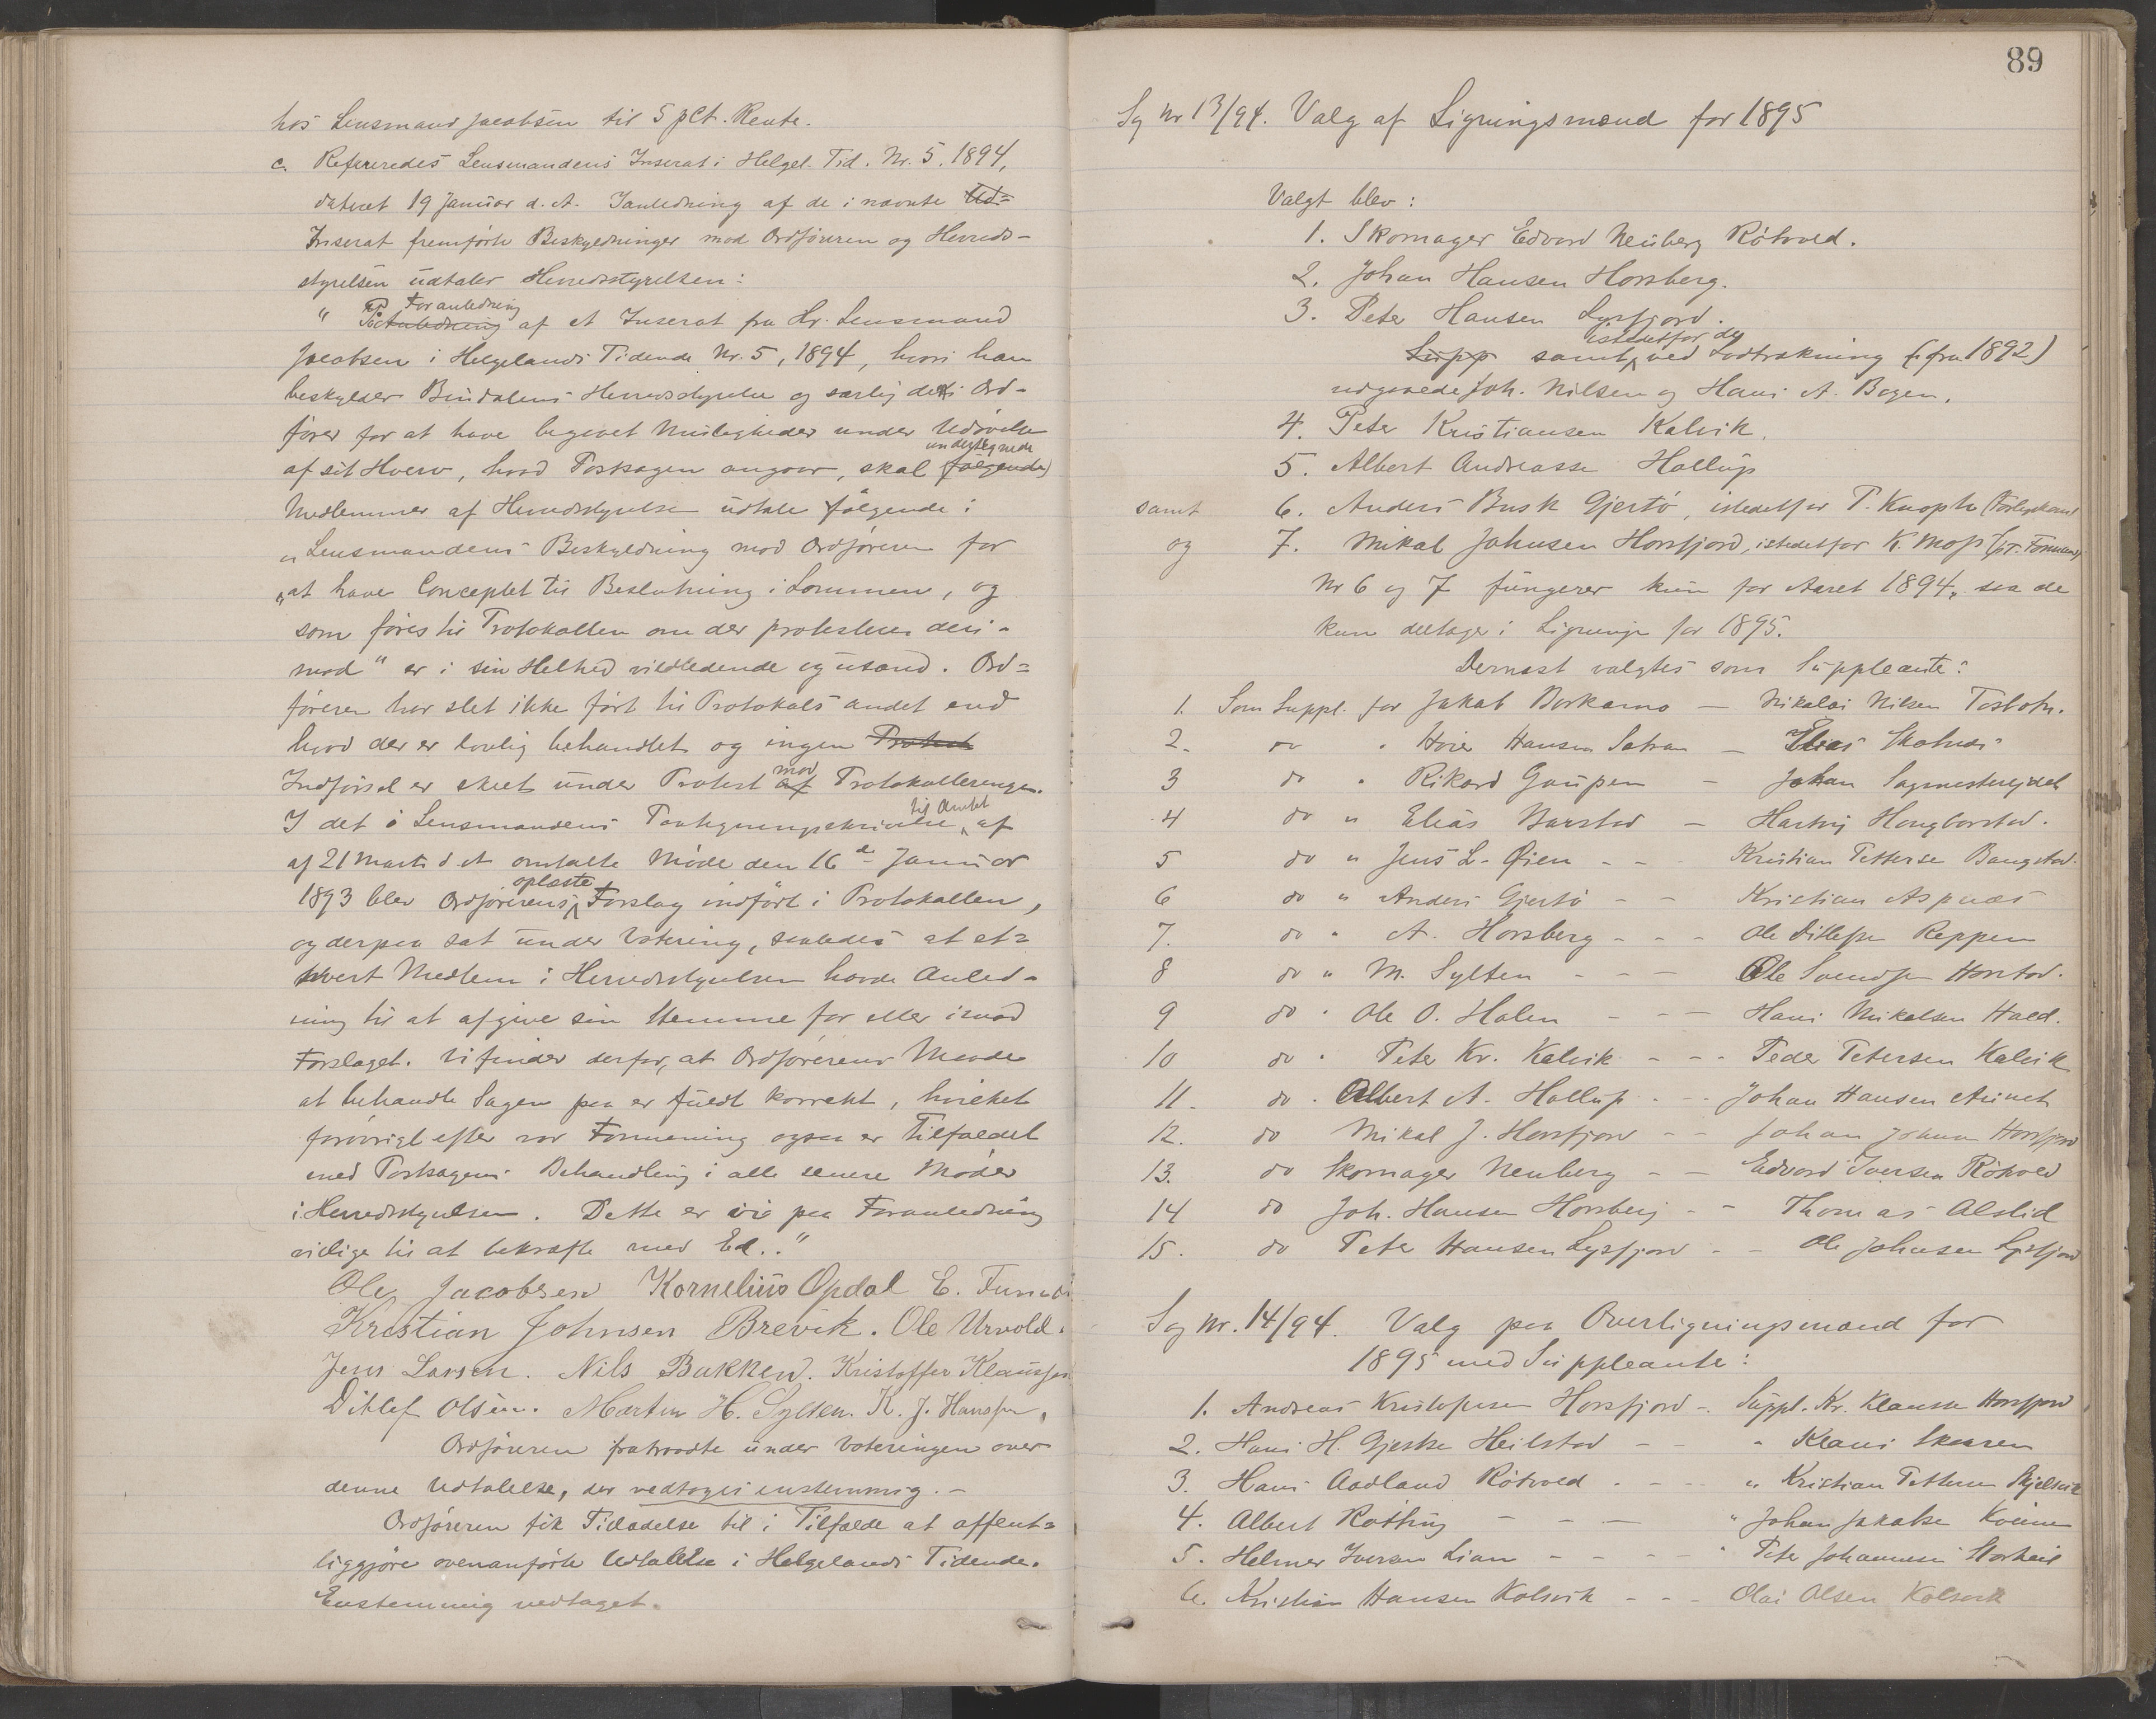 hos Lensmand Jacobsen til 5 pCt. Rente.
c. Refereredes Lensmandens Inserat i Helgel. Tid. Nr. 5. 1894,
dateret 19 Januar d. A. I anledning af de i nævnte Ud=
Inserat fremførte Beskyldninger mod Ordføreren og Herreds-
styrelsen udtaler Herredsstyrelsen:
" Paa Foranledning af et Inserat fra Hr. Lensmand
Jacobsen i Helgelands Tidende Nr. 5, 1894, hvori han
beskylder Bindalens Herredsstyrelse og særlig dets Ord-
fører for at have begaaet Misligheder under Udøvelse
af sit Hverv, hvad Postsagen angaar, skal undertegnede
Medlemmer af Herredsstyrelsen udtale følgende:
„Lensmandens Beskyldning mod Ordføreren for
„at have Conceptet til Beslutning i Lommen, og
som føres til Protokollen om der protesteres deri-
mod" er i sin Helhed vildledende og usand. Ord=
føreren har slet ikke ført til Protokols andet end
hvad der er lovlig behandlet og ingen Protest
Indførsel er skeet under Protest af mod Protokolleringen.
I det i Lensmandens Paategningsskrivelse til Amtet af
af 21 Marts d A omtalte Møde den 16de Januar
1893 blev Ordførerens oplæste Forslag indført i Protokollen,
og derpaa sat under Votering, saaledes at et=
hvert Medlem i Herredsstyrelsen havde Anled-
ning til at afgive sin Stemme for eller imod
Forslaget. Vi finder derfor, at Ordførerens Maade
at behandle Sagen paa er fuldt korrekt, hvilket
forøvrigt efter vor Formening ogsaa er Tilfældet
med Postsagens Behandling i alle senere Møder
i Herredsstyrelsen. Dette er vi paa Foranledning
villige til at bekræfte med Ed.."
Ole Jacobsen Kornelius Opdal E.
Kristian Johnsen Brevik. Ole Urvold.
Jens Larsen. Nils Bakken. Kristoffer Klaussen
Ditlef Olsen. Martin H. Sylten. K. J. Hanssen.
Ordføreren fratraadte under Voteringen over
denne Udtalelse, der vedtoges enstemmig. -
Ordføreren fik Tilladelse til i Tilfælde at offent=
liggjøre ovenanførte Udtalelse i Helgelands Tidende.
Enstemmig vedtaget.
89
Sag Nr 13/94. Valg af Ligningsmænd for 1895
Valgt blev:
1. Skomager Edvard Neuberg Røtvold.
2. Johan Hansen Horsberg.
3. Peter Hansen Lysfjord.
Supp samt istedetfor de ved Lodtrækning (fra 1892)
udgaaede Joh. Nilsen og Hans A. Bogen.
4. Peter Kristiansen Kalvik.
5. Albert Andreassen Hollup
samt 6. Anders Busk Gjertø, istedetfor P. Knoph
og 7. Mikal Johnsen Horsfjord, istedetfor K. Moss
Nr 6 og 7 fungerer kun for Aaret 1894, saa de
kun deltager i Ligningen for 1895.
Dernæst valgtes som Suppleanter:
1. Som Suppl. for Jakob Borkamo - Nikolai Nilsen Tosbotn.
2. do " Hans Hansen - Elias Skotnes
3 do " Rikard Gaupen - Johan
4 do " Elias Barstad - Hartvig Hongbarstad.
5 do " Jens L. Øien - - Kristian Pettersen Bangstad.
6 do " Anders Gjertø - - Kristian Aspnæs
7. do " A. Horsberg - - - Ole Ditlefsen Reppen
8 do " M. Sylten - - - Ole Svendsen Horstad.
9 do " Ole O. Holm - - - Hans Mikalsen Hald.
10 do " Peter Kr. Kalvik - - - Peder Petersen Kalvik
11. do " Albert A. Hollup - - - Johan Hansen Aarnes
12. do Mikal J. Horsfjord - - Johan Johnsen Horsfjord
13. do Skomager Neuberg - - Edvard Iversen Røtvold
14 do Joh. Hansen Horsberg - - Thomas Alslid
15. do Peter Hansen Lysfjord - - Ole Johnsen Lysfjord
Sag Nr. 14/94. Valg paa Overligningsmænd for
1895 med Suppleanter:
1. Andreas Kristofersen Horsfjord - Suppl. Kr. Klausen Horsfjord
2. Hans H. Gjertsen Heilstad - - " Klaus Skaaren
3. Hans Aadland Røtvold - - - " Kristian Pettersen Skjelsvik
4. Albert Røtting - - - " Johan Jakobsen
5. Helmer Iversen Lian - - - - " Peter Johannesen
6. Kristian Hansen Kolsvik - - - Olai Olsen Kolsvik